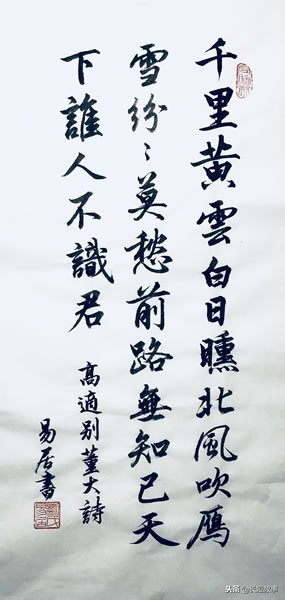 千里黄雲白日曛北風吹雁
雪紛〻莫愁前路無知己天
下誰人不識君
高適别董大詩
易居書
头条@长垣故事